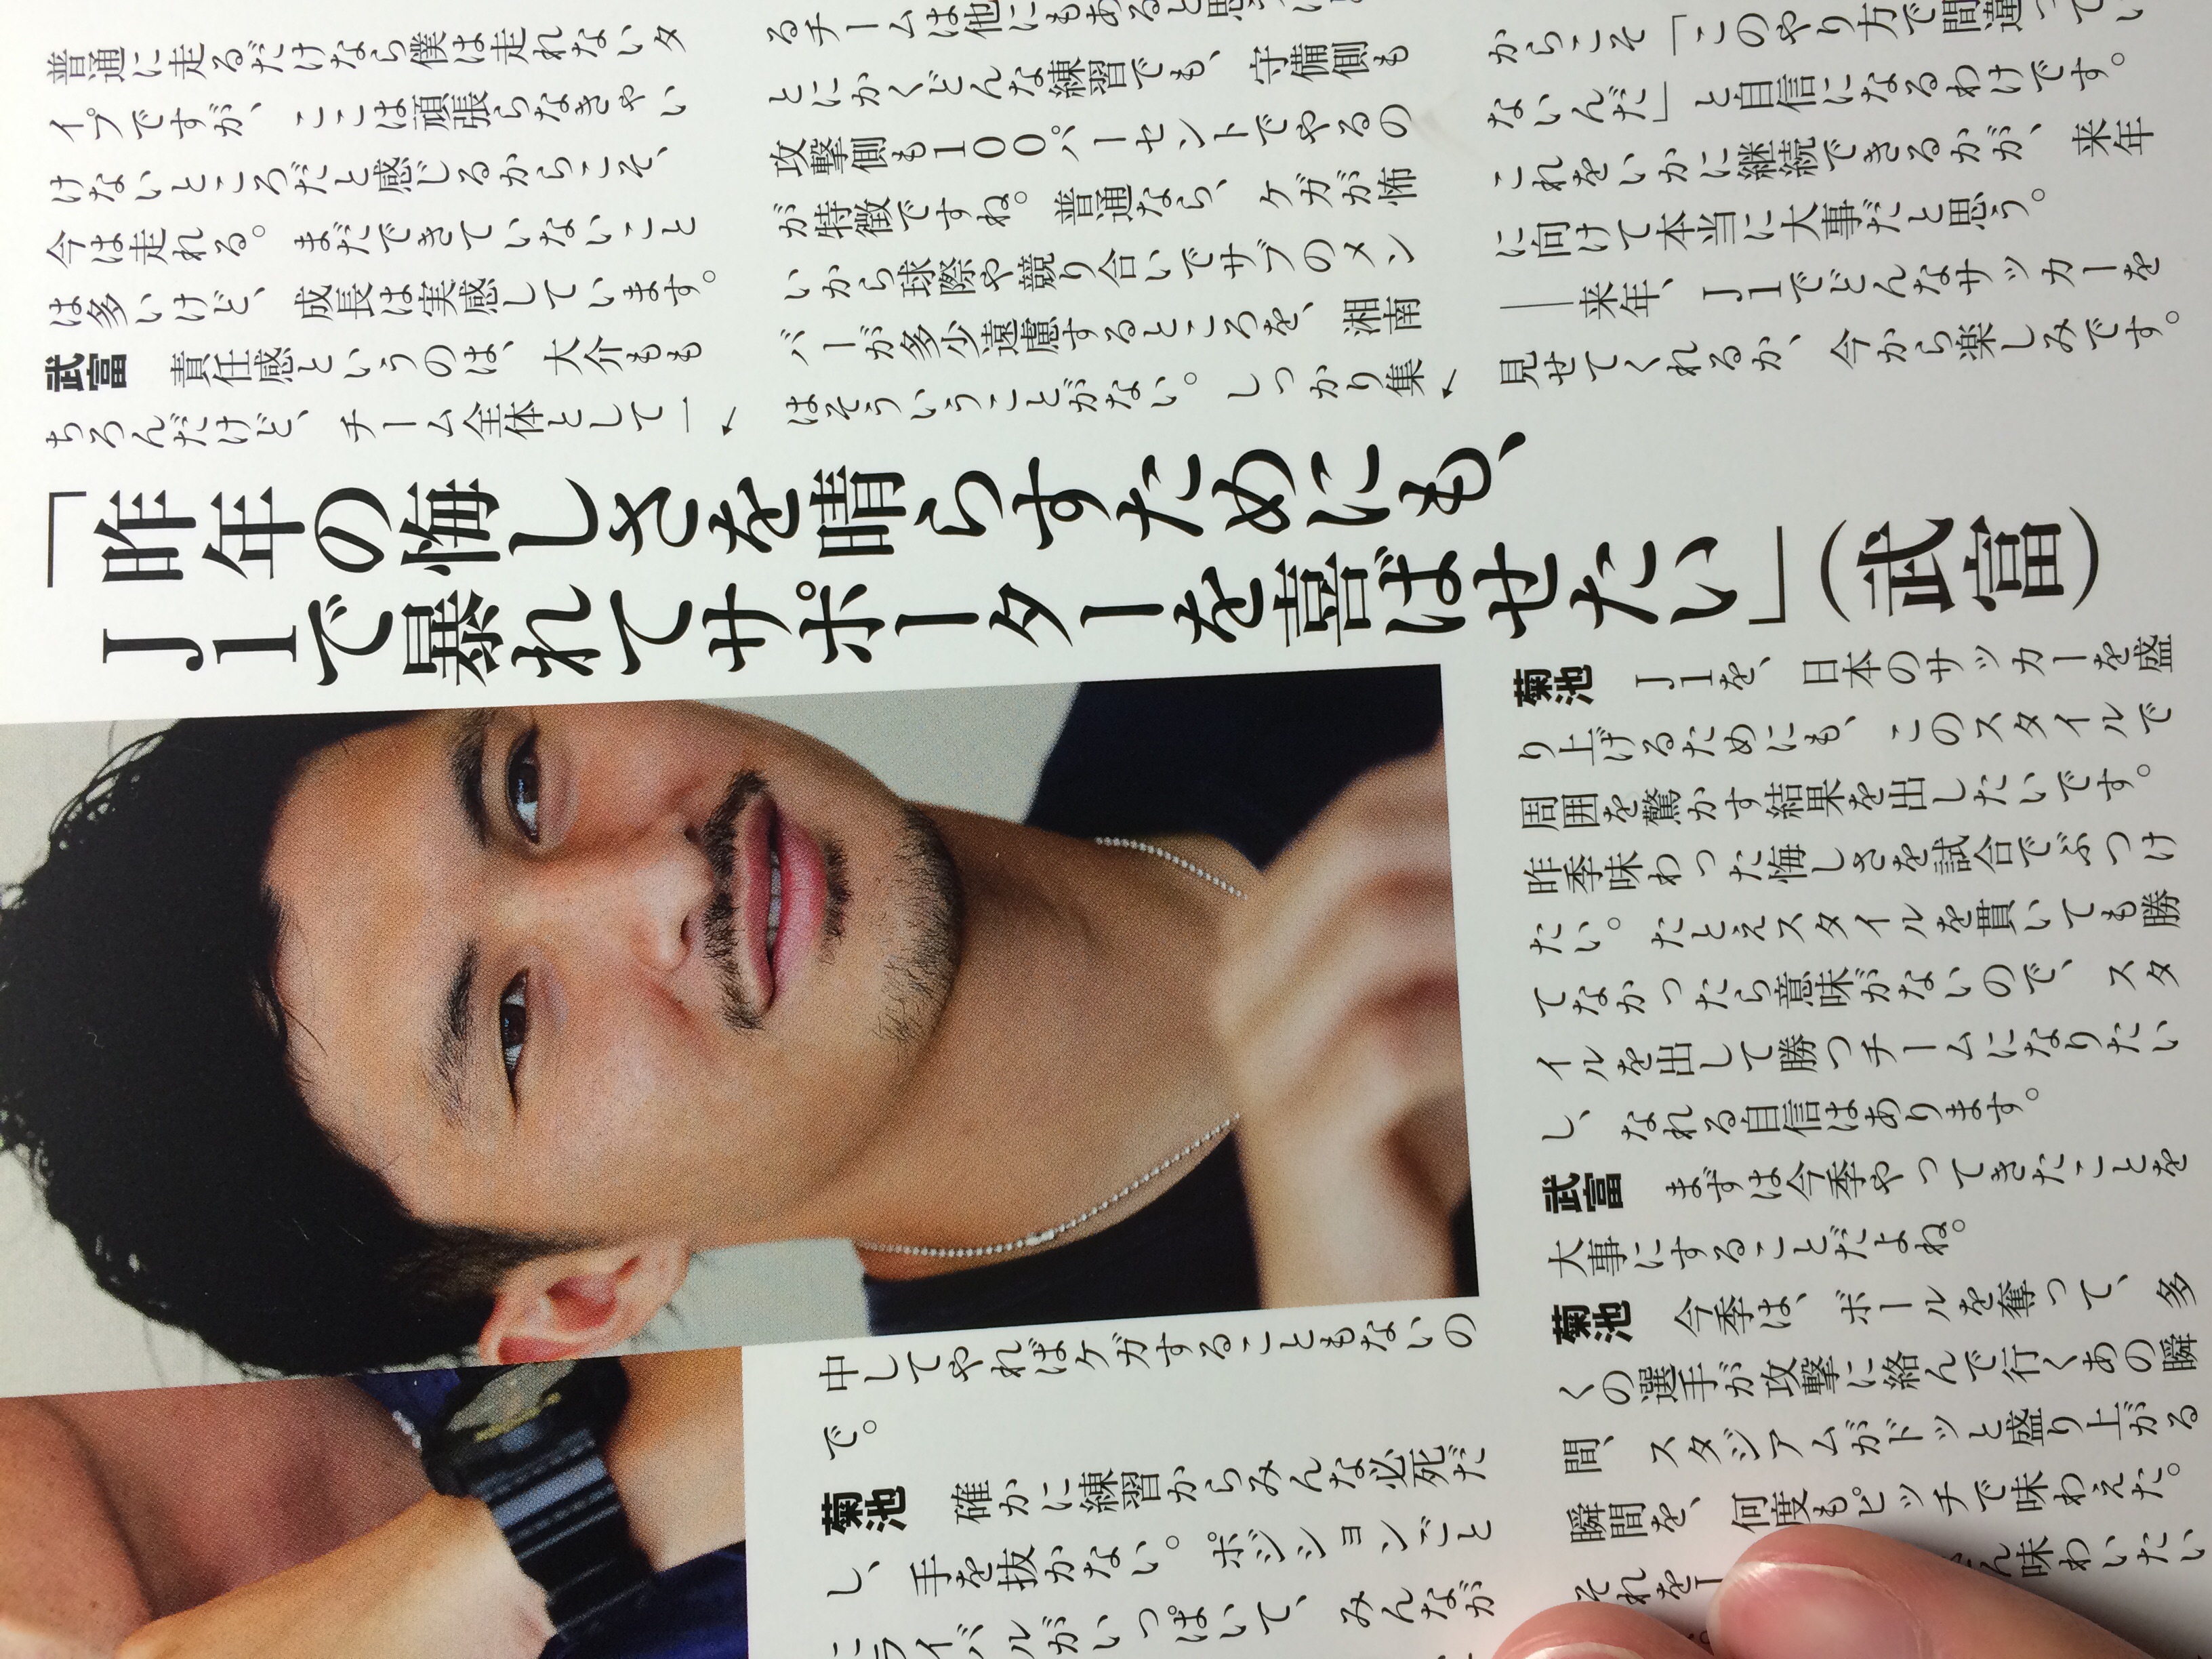 普通に走るだけなら僕は走れないタ
イプですが、ここは頑張らなきゃい
けないところだと感じるからこそ、
今は走れる。まだできていないこと
は多いけど、成長は実感しています。
武富　責任感というのは、大介もも
ちろんだけど、チーム全体として一↙
るチームは他にもあると思
とにかくどんな練習でも、守備側も
攻撃側も100パーセントでやるの
が特徴ですね。普通なら、ケガが怖
いから球際や競り合いでサブのメン
バーが多少遠慮するところを、湘南
はそういうことがない。しっかり集↙
からこそ「このやり方で間違ってい
ないんだ」と自信になるわけです。
これをいかに継続できるかが、来年
に向けて本当に大事だと思う。
――来年、J1でどんなサッカーを
見せてくれるか、今から楽しみです。
「昨年の悔しさを晴らすためにも、
J1で暴れてサポーターを喜ばせたい」（武富）
中してやればケガすることもないの
で。
菊池　確かに練習からみんな必死だ
し、手を抜かない。ポジションごと
ライバルがいっぱいて、みんなが
菊池　J1を、日本のサッカーを盛
り上げるためにも、このスタイルで
周囲を驚かす結果を出したいです。
昨季味わった悔しさを試合でぶつけ
たい。たとえスタイルを貫いても勝
てなかったら意味がないので、スタ
イルを出して勝つチームになりたい
し、なれる自信はあります。
武富　まずは今季やってきたことを
大事にすることだよね。
菊池　今季は、ボールを奪って、多
くの選手が攻撃に絡んで行くあの瞬
間、スタジアムがドッと盛り上がる
瞬間を、何度もピッチで味わえた。
それを
ん味わいたい